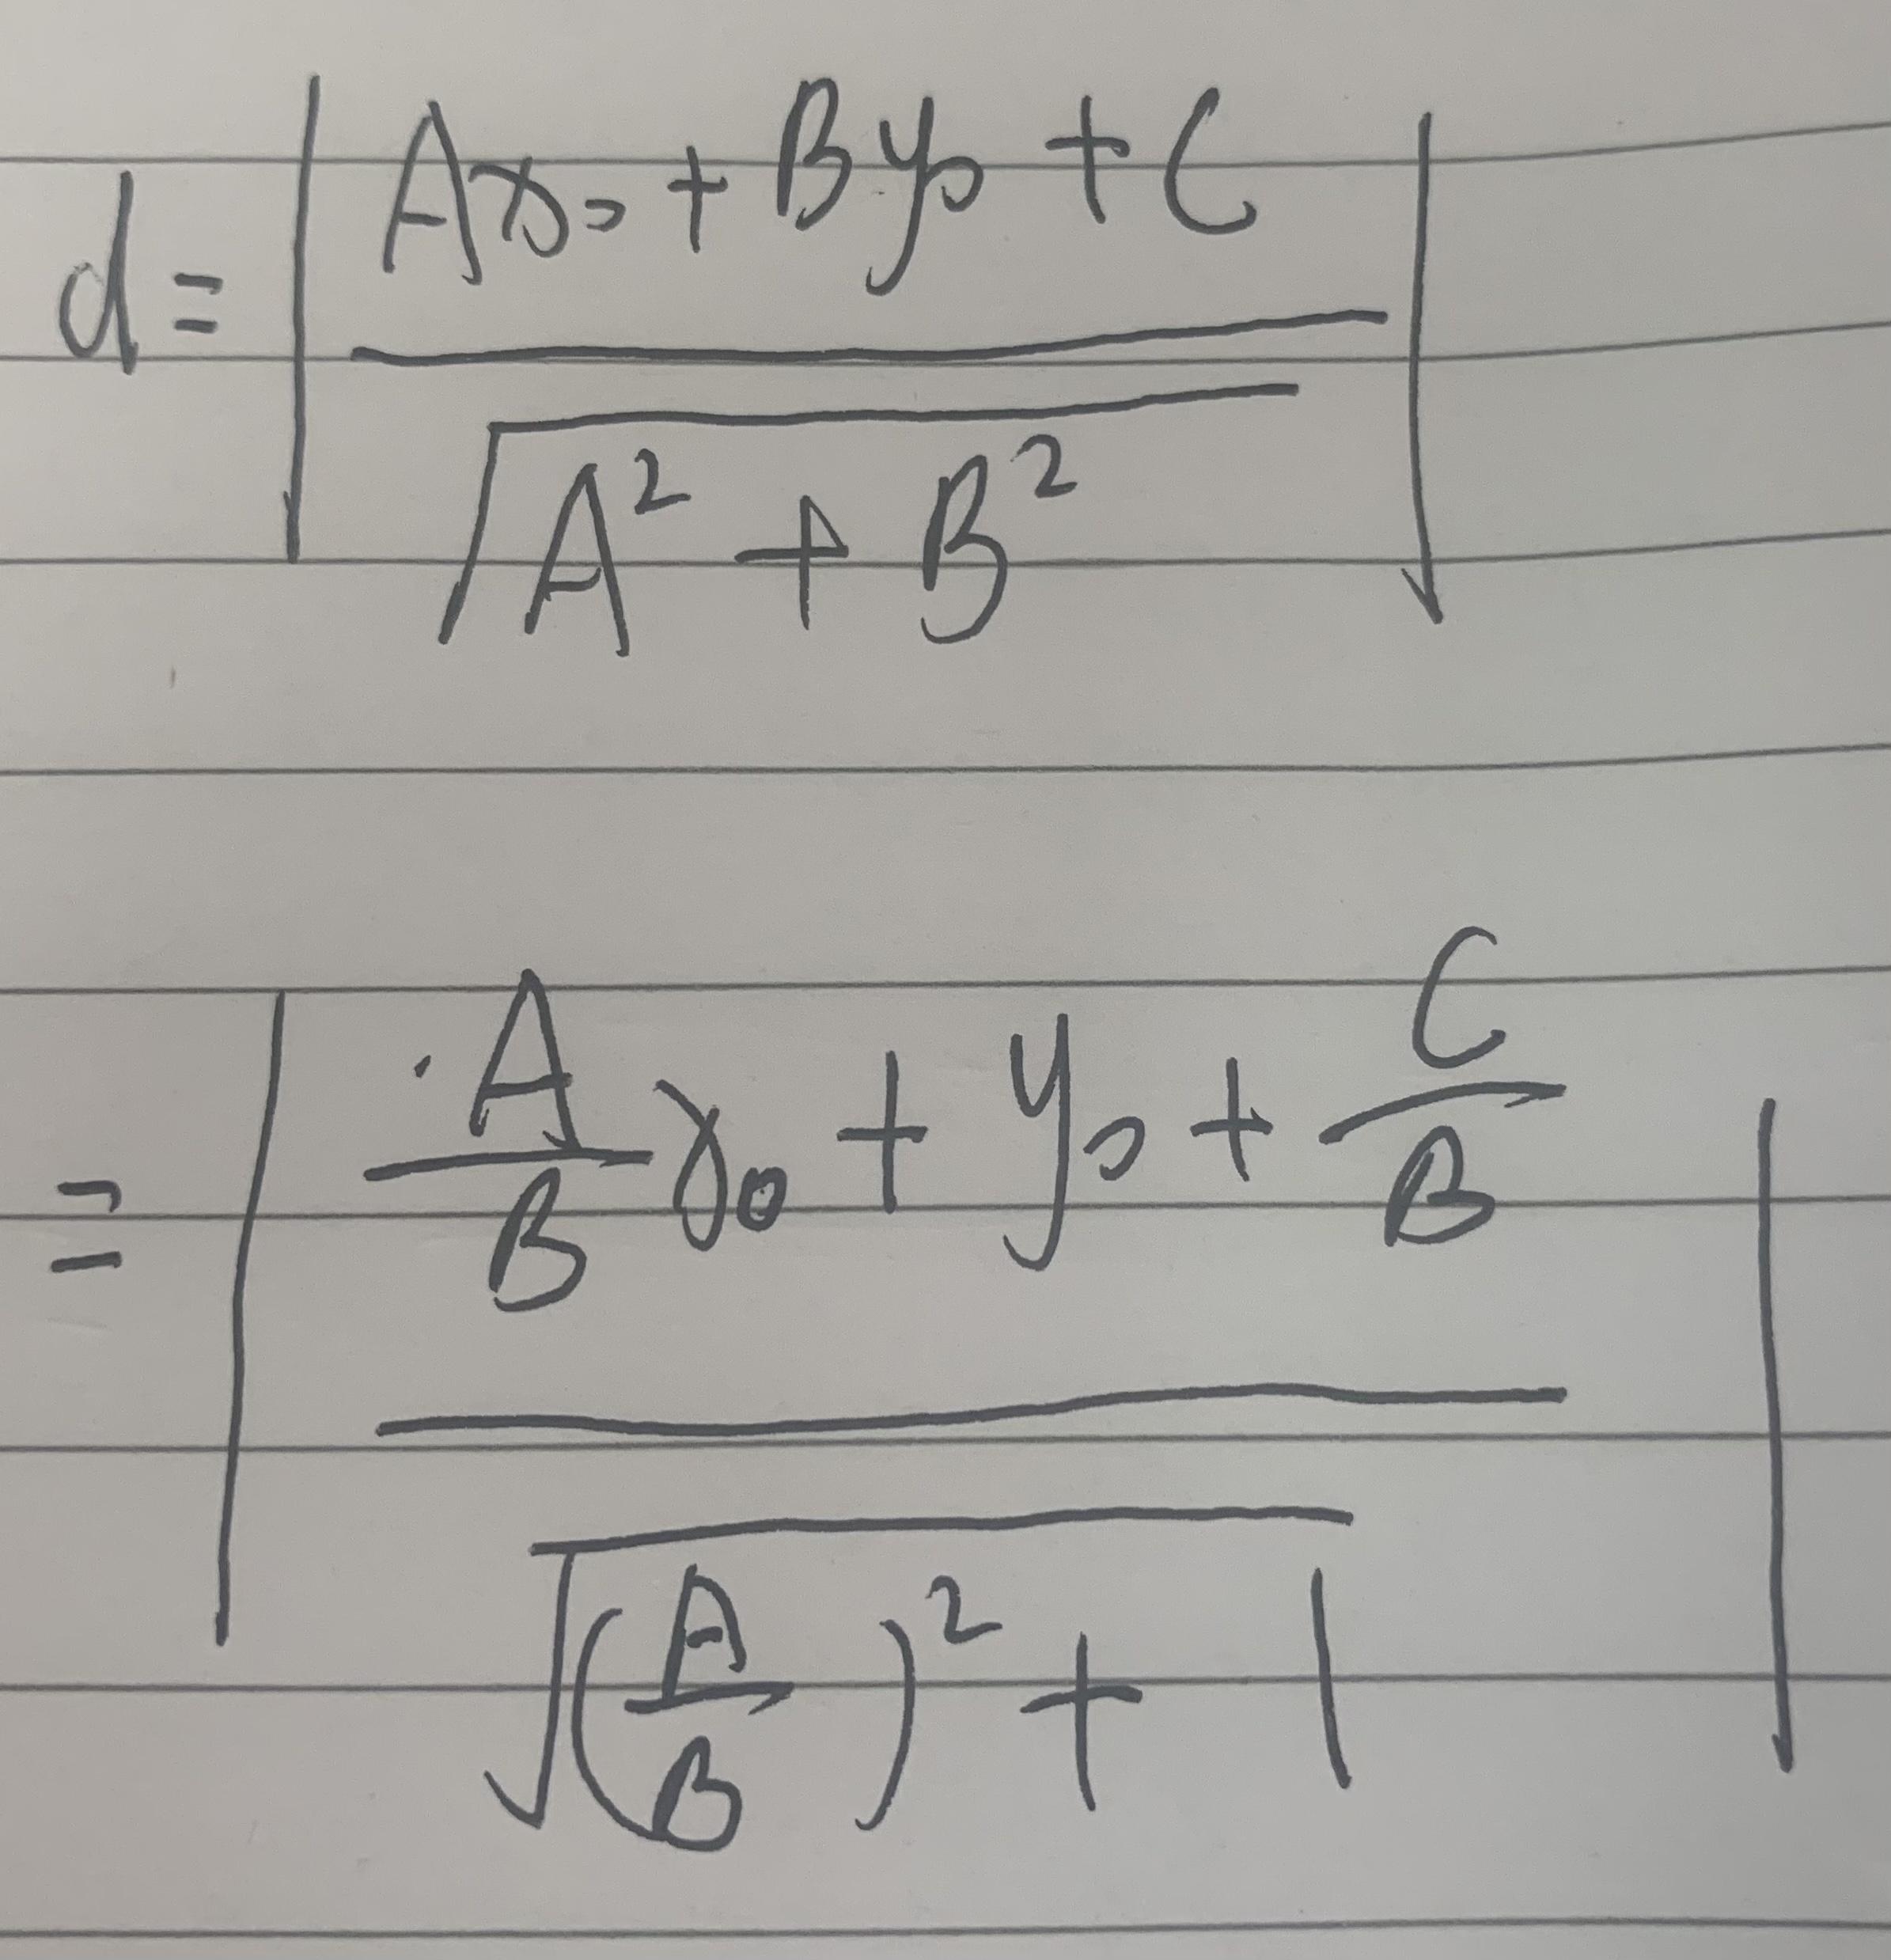 d = | (Ax₀ + By₀ + C) / √(A² + B²) |
= | (A/B x₀ + y₀ + C/B) / √((A/B)² + 1) |